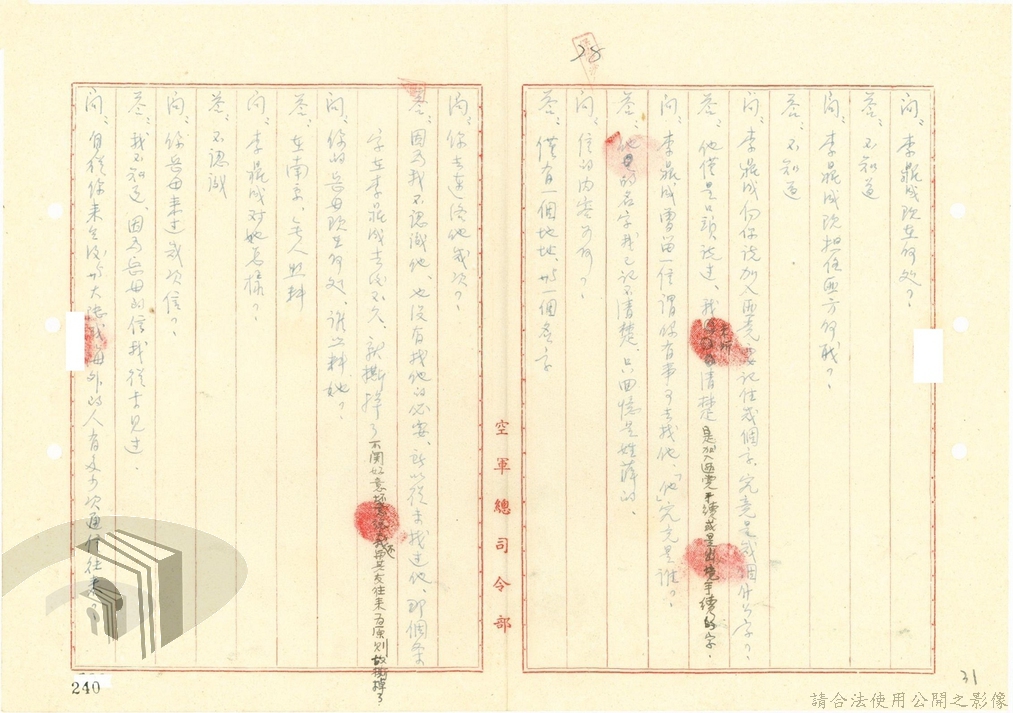 28
問：李鼎成現在何処？
答：不知道
問：李鼎成現担任匪方何職？
答：不知道．
問：李鼎成向你説加入匪党要記住幾個字，究竟是幾個什么字？
答：他僅是口頭説过，我 清楚是加入匪党手續或是出境手續的字．
問：李鼎成曾留一信謂你有事可去找他，「他」究竟是誰？
答：他的名字我已記不清楚，只回憶是姓薛的．
問：信的内容為何？
答：僅有一個地址，與一個名字
空軍總司令部
問：你去連絡他幾次？
答：因為我不認識他，也沒有找他的必要，所以從未找过他，那個条
字在李鼎成去後不久，就撕掉了不関好意 我 其友往來為原則故撕掉了
問：你的岳母現在何処，誰照料她？
答：在南京，無人照料
問：李鼎成対她怎樣？
答：不認識
問：你岳母來过幾次信？
答：我不知道，因為岳母的信我從未見过．
問：自從你來台後與大陸或海外的人有多少次通信往來？
240
31
請合法使用公開之影像